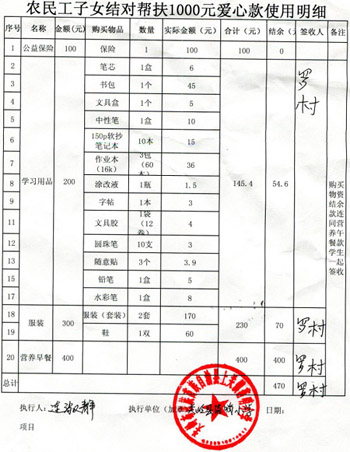 农民工子女结对帮扶1000元爱心款使用明细
序号 名称 金额(元) 购买物品 数量 实际金额(元) 合计(元) 结余(元) 签收人 备注
1 公益保险 100 保险 1 100 100 0
2 笔芯 1盒 6
3 书包 1个 45
4 文具盒 1个 5
5 中性笔 1盒 10
6 150p软抄笔记本 10本 15
7 作业本(16k) 3包(60本) 36
学习用品 200 145.4 54.6
8 涂改液 1瓶 1.5
9 字帖 1本 3
11 文具胶 1袋(12卷) 4
12 圆珠笔 10支 3
13 随意贴 3个 3.9
15 铅笔 1盒 5
17 水彩笔 1盒 8
18 服装(套装) 2套 170
服装 300 230 70
19 鞋 1双 60
20 营养早餐 400 400 400
总计 470
罗村
罗村
罗村
罗村
购买物资结余款连同营养午餐款学生一起签收
执行人: 执行单位(加 日期:
项目